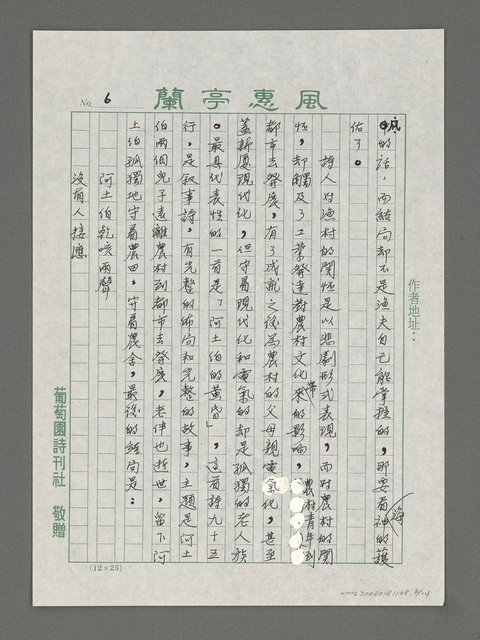 No. 6
風惠亭蘭
作者地址：
帆的話，而結局卻不是漁夫自己能掌控的，那要看海神的護
佑了。
詩人對漁村的關懷是以悲劇形式表現，而對農村的關
懷，卻觸及了工業發達對農村文化帶來的影響，農村青年到
都市去發展，有了成就之後為農村的父母親電氣化，甚至
蓋新厦現代化，但守着現代化和電氣的却是孤獨的老人族
。最具代表性的一首是「阿土伯的黃昏」，這首詩九十五
行，是叙事詩，有完整的佈局和完整的故事，主題是阿土
伯兩個兒子遠離農村到都市去發展，老伴也逝世，留下阿
土伯孤獨地守着農田，守着農舍，最後的結局是：
阿土伯乾咳兩聲
沒有人接應
葡萄園詩刊社 敬贈
(12×25)
NMTL20080181198. 6/14